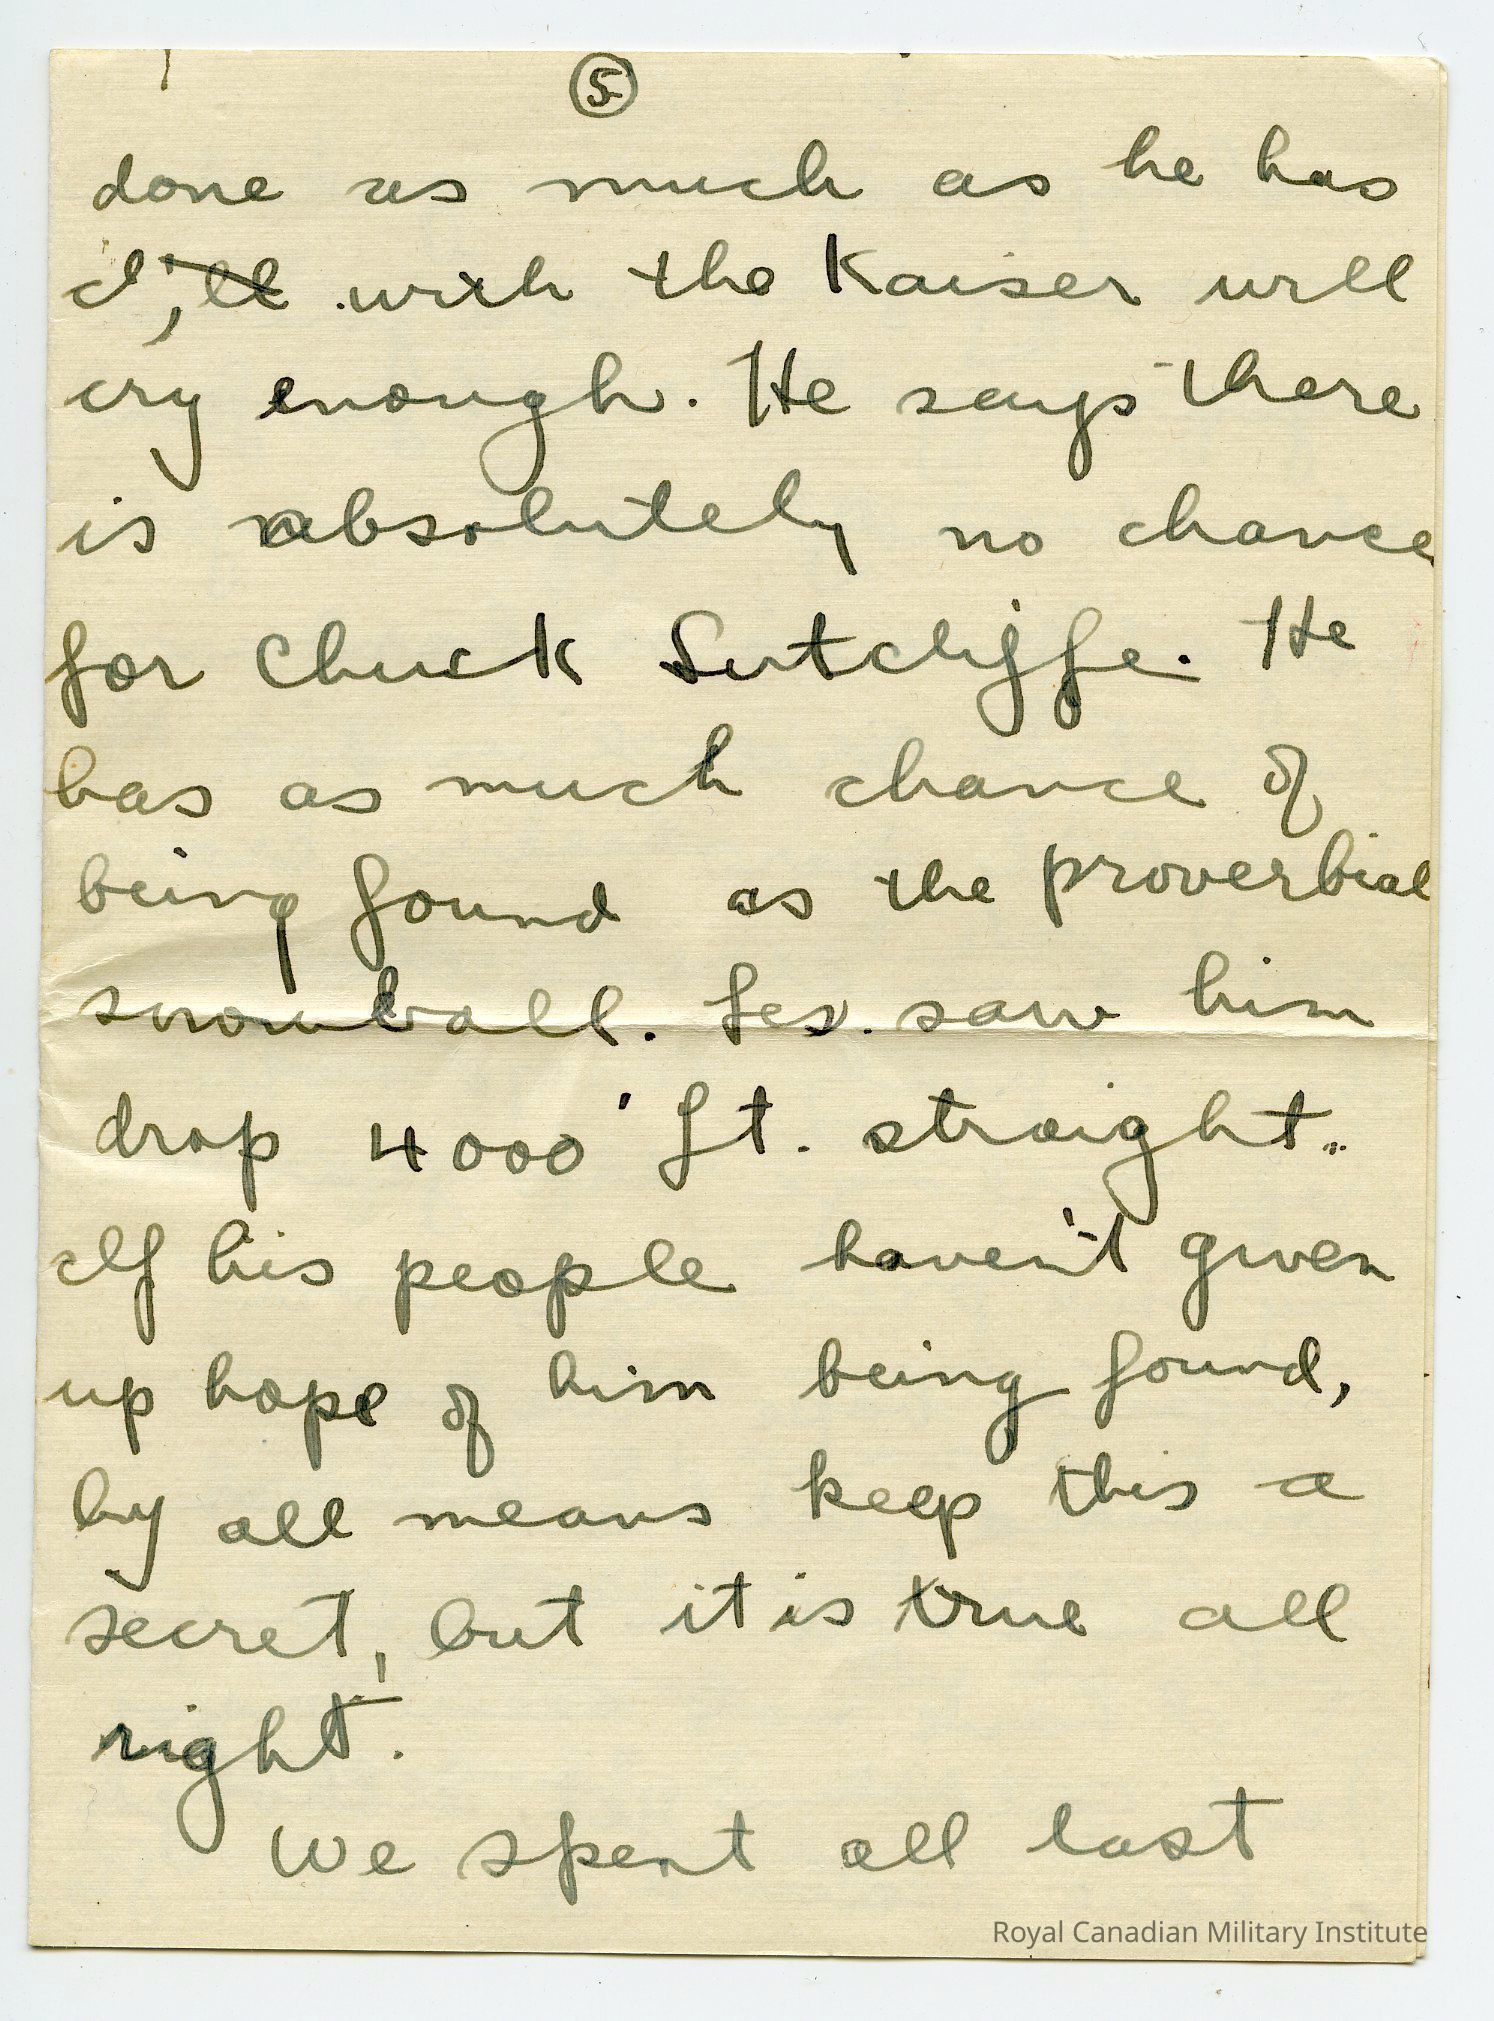 5
done as much as he has
I'll wish the Kaiser will
cry enough. He says there
is absolutely no chance
for Chuck Sutcliffe. He
has as much chance of
being found as the proverbial
snowball. Les. saw him
drop 4000' ft. straight.
If his people haven't given
up hope of him being found,
by all means keep this a
secret, but it is true all
right.
We spent all last
Royal Canadian Military Institute